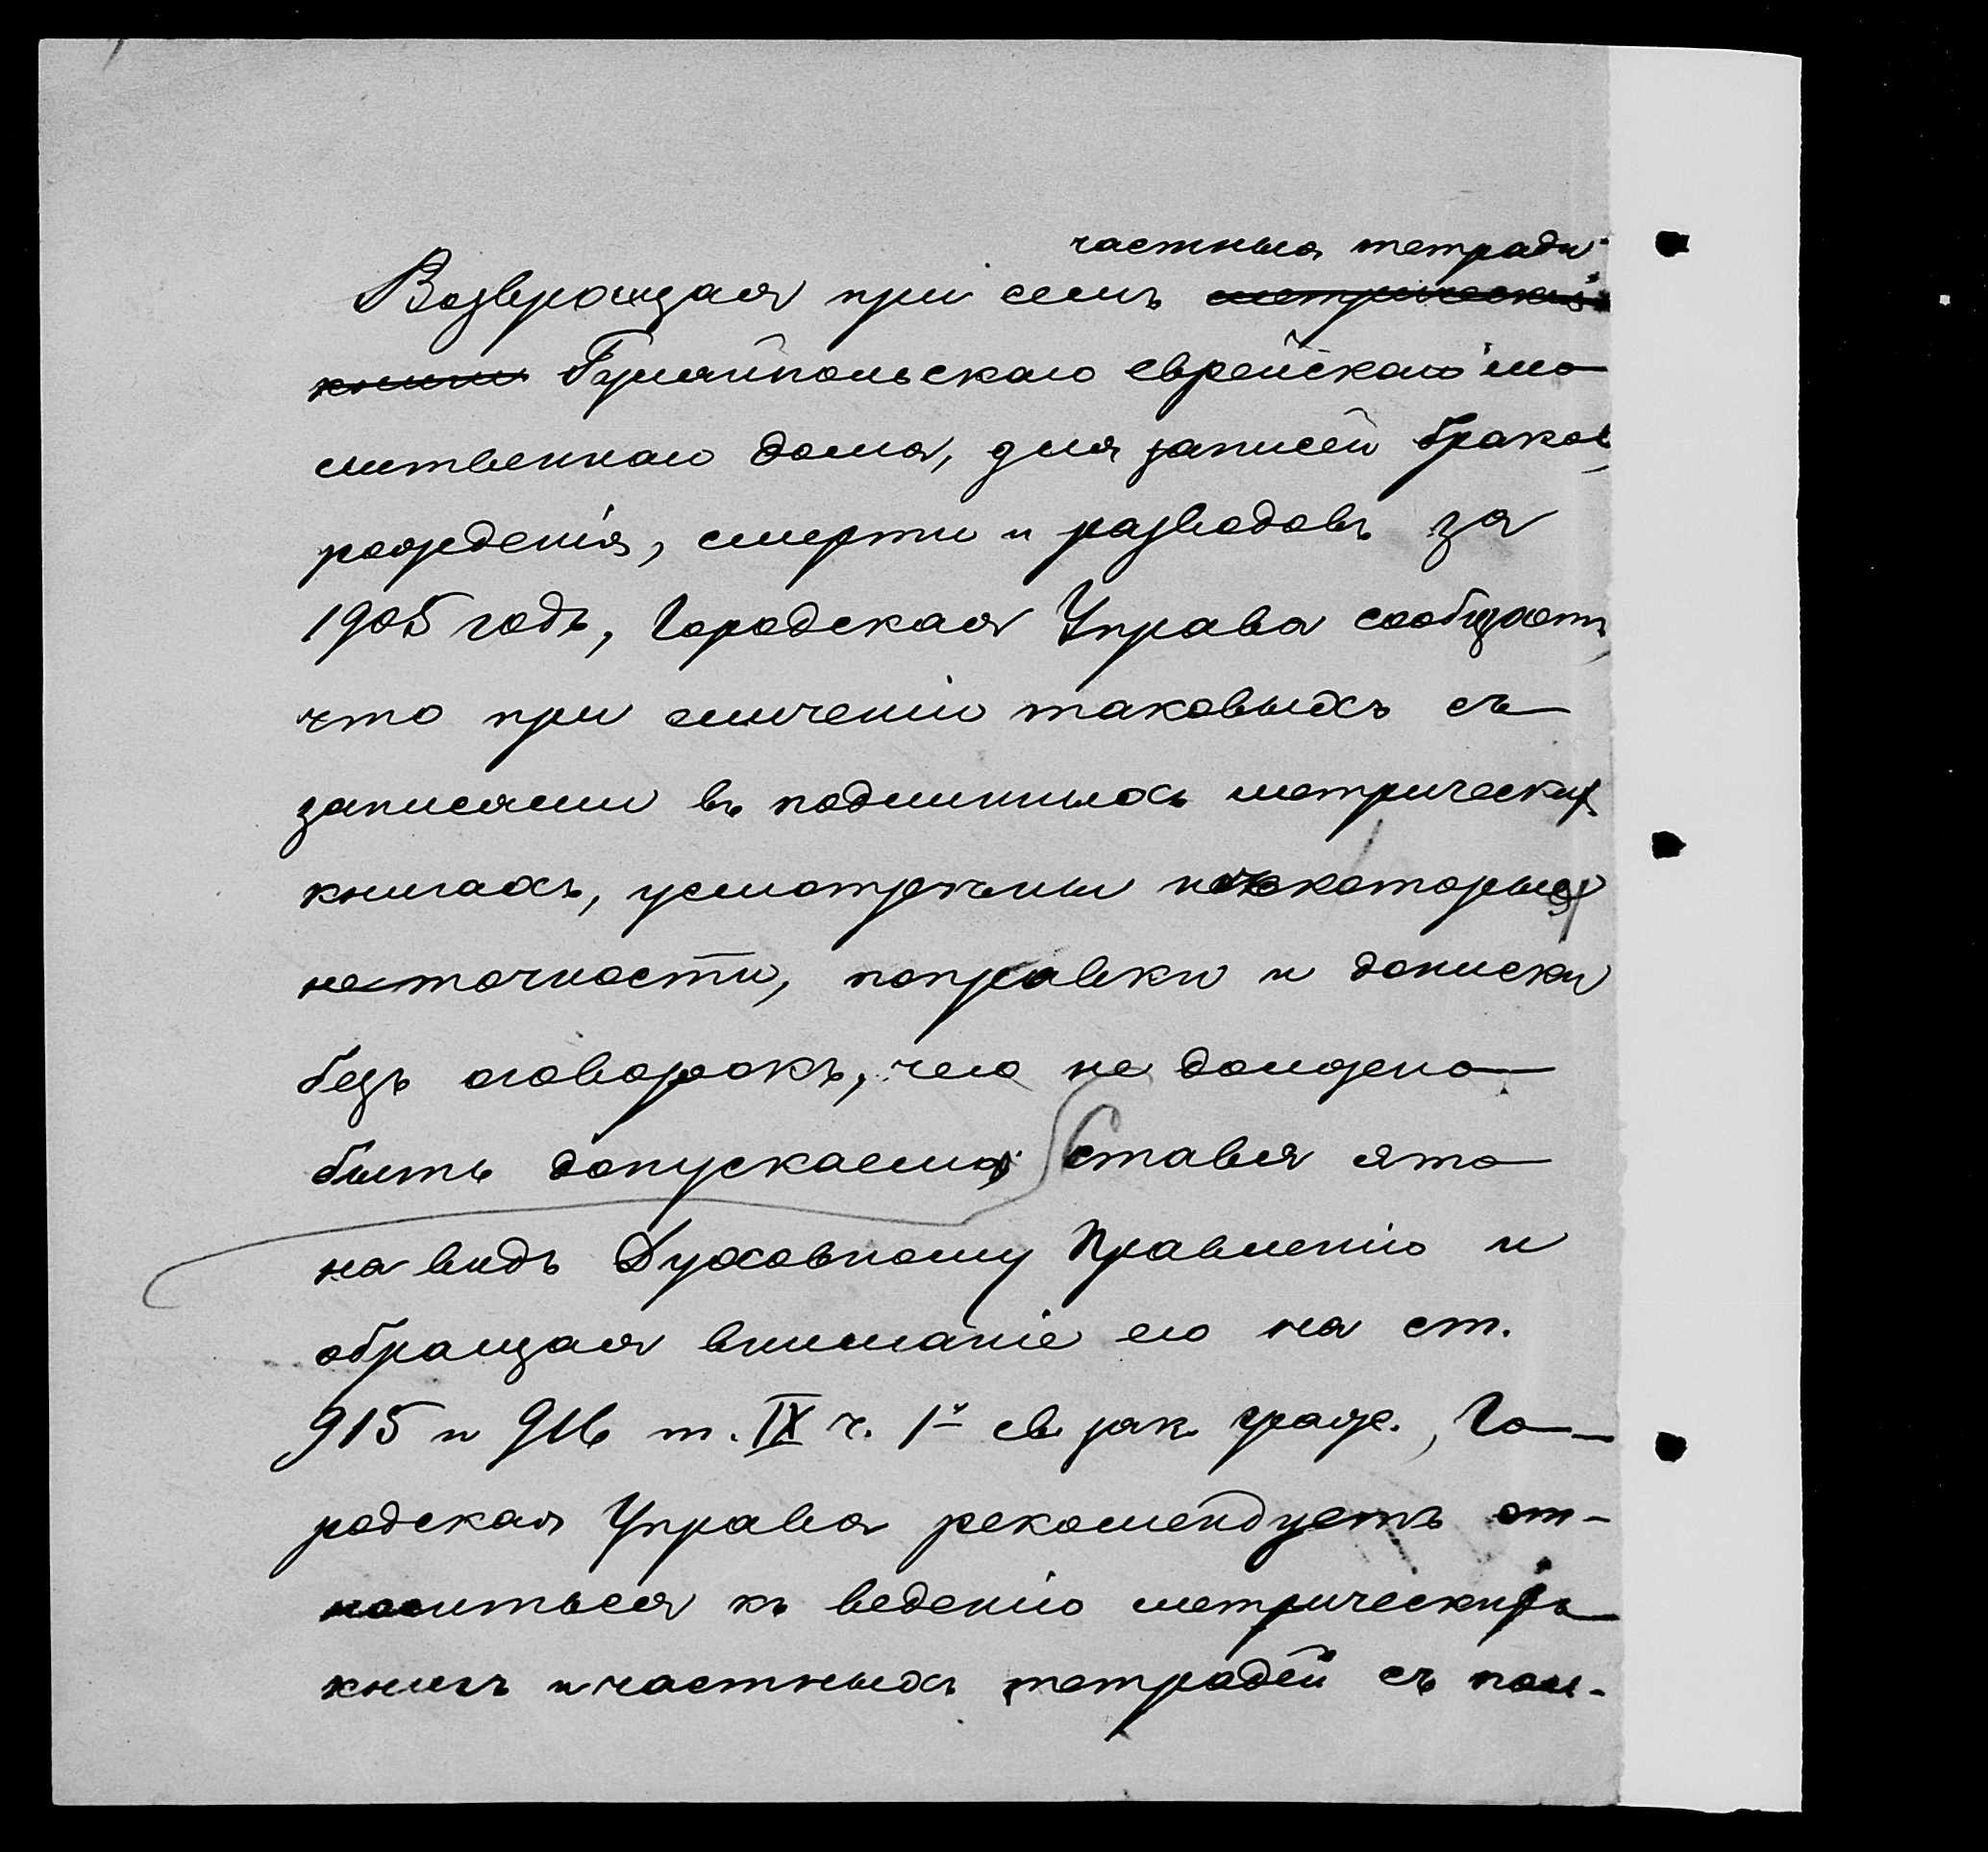 частныя тетради
Возвращая при семъ метрическія
книги Гуляйпольскаго еврейскаго мо
литвеннаго дома, для записей браковъ,
рожденія, смерти и разводовъ за
1905 годъ, Городская Управа сообщаетъ,
что при сличеніи таковыхъ съ
записями въ подлинныхъ метрическихъ
книгахъ, усмотрѣны нѣкоторыя
неточности, поправки и дописки
безъ оговорокъ, чего не должно
быть допускаемо. Ставя это
на видъ Духовному Правленію и
обращая вниманіе его на ст.
915 и 916 т. IX ч. 1й св. зак. гражд., Го-
родская Управа рекомендуетъ от-
носиться къ веденію метрическихъ
книгъ и частныхъ тетрадей съ пол-